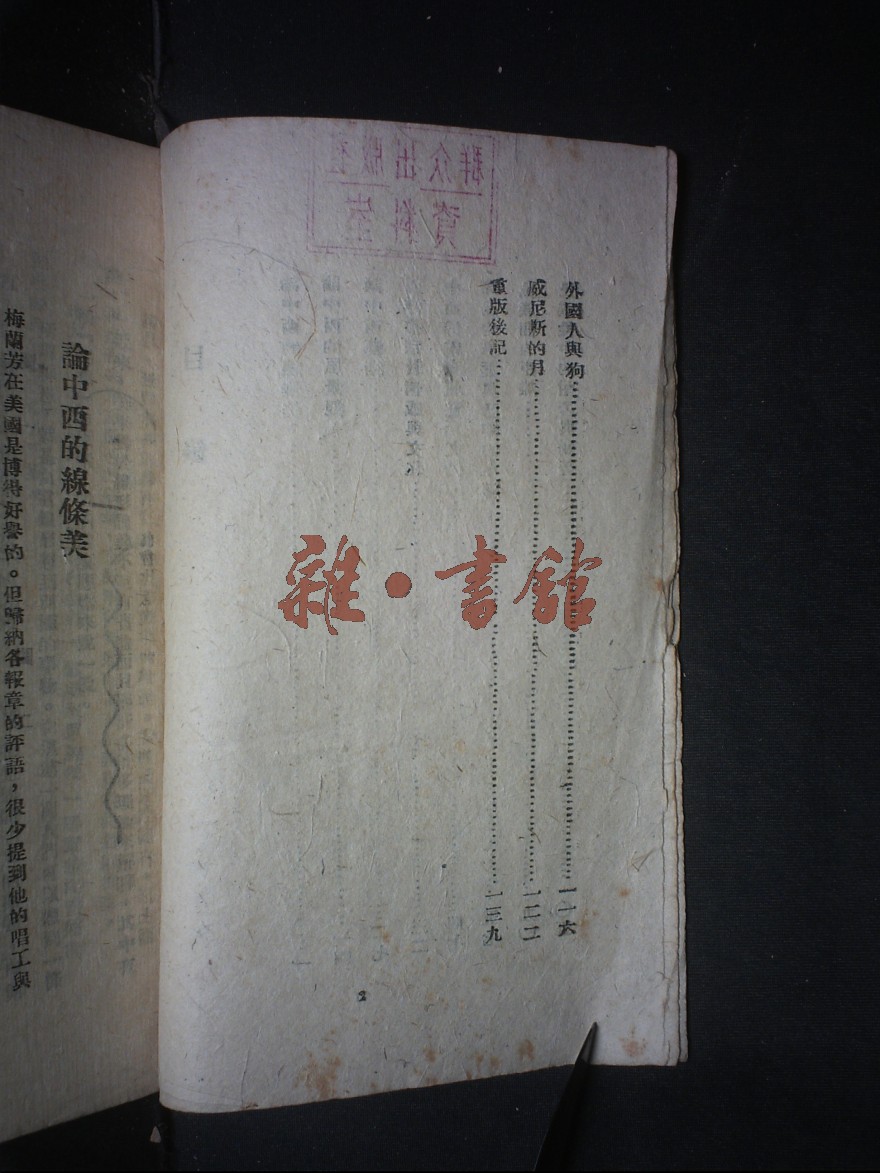 群众出版社
資料室
外國人與狗……一一六
威尼斯的月……一二二
重版後記……一三九
2
雜·書館
論中西的線條美
梅蘭芳在美國是博得好譽的。但歸納各報章的評語，很少提到他的唱工與